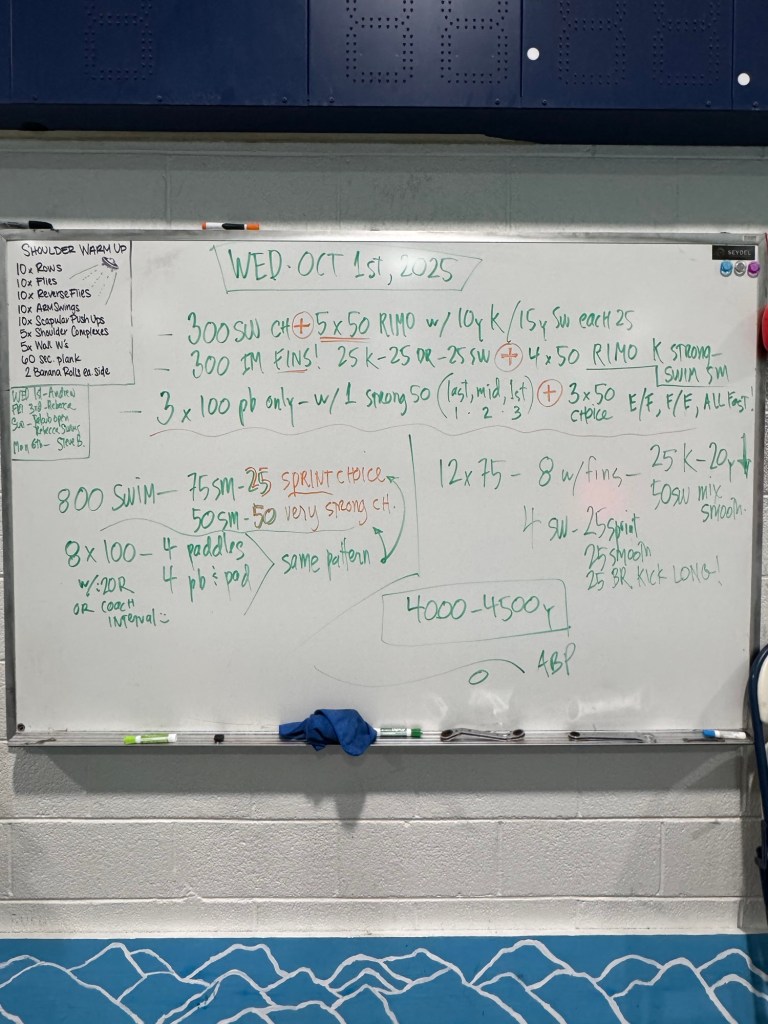 SEYDEL
SHOULDER WARM UP
10x Rows
10x Flies
10x Reverse Flies
10x Arm Swings
10x Scapular Push Ups
5x Shoulder Complexes
5x Wall W's
60 sec. plank
2 Banana Rolls ea. side
WED 1st - Andrew
FRI 3rd - Rebecca
Rebecca
Mon 6th - Steve B.
WED. OCT 1st, 2025
- 300 SW CH + 5x50 RIMO w/ 10y K/15y SW each 25
- 300 IM FINS! 25 K-25 DR-25 SW + 4x50 RIMO K STRONG-
SWIM SM
- 3x100 pb only - w/1 strong 50 (last, mid, 1st) + 3x50 E/F, F/E, ALL Fast!
1 2 3 CHOICE
800 SWIM - 75SM - 25 SPRINT CHOICE
50SM - 50 very strong CH.
8x100 - 4 paddles
4 pb & pad
same pattern
w/:20R
OR COACH
INTERVAL
12x75 - 8 w/fins - 25 K-20y
50SW mix
smooth.
4 SW - 25 sprint
25 smooth
25 BR KICK LONG!
4000-4500y
ABP